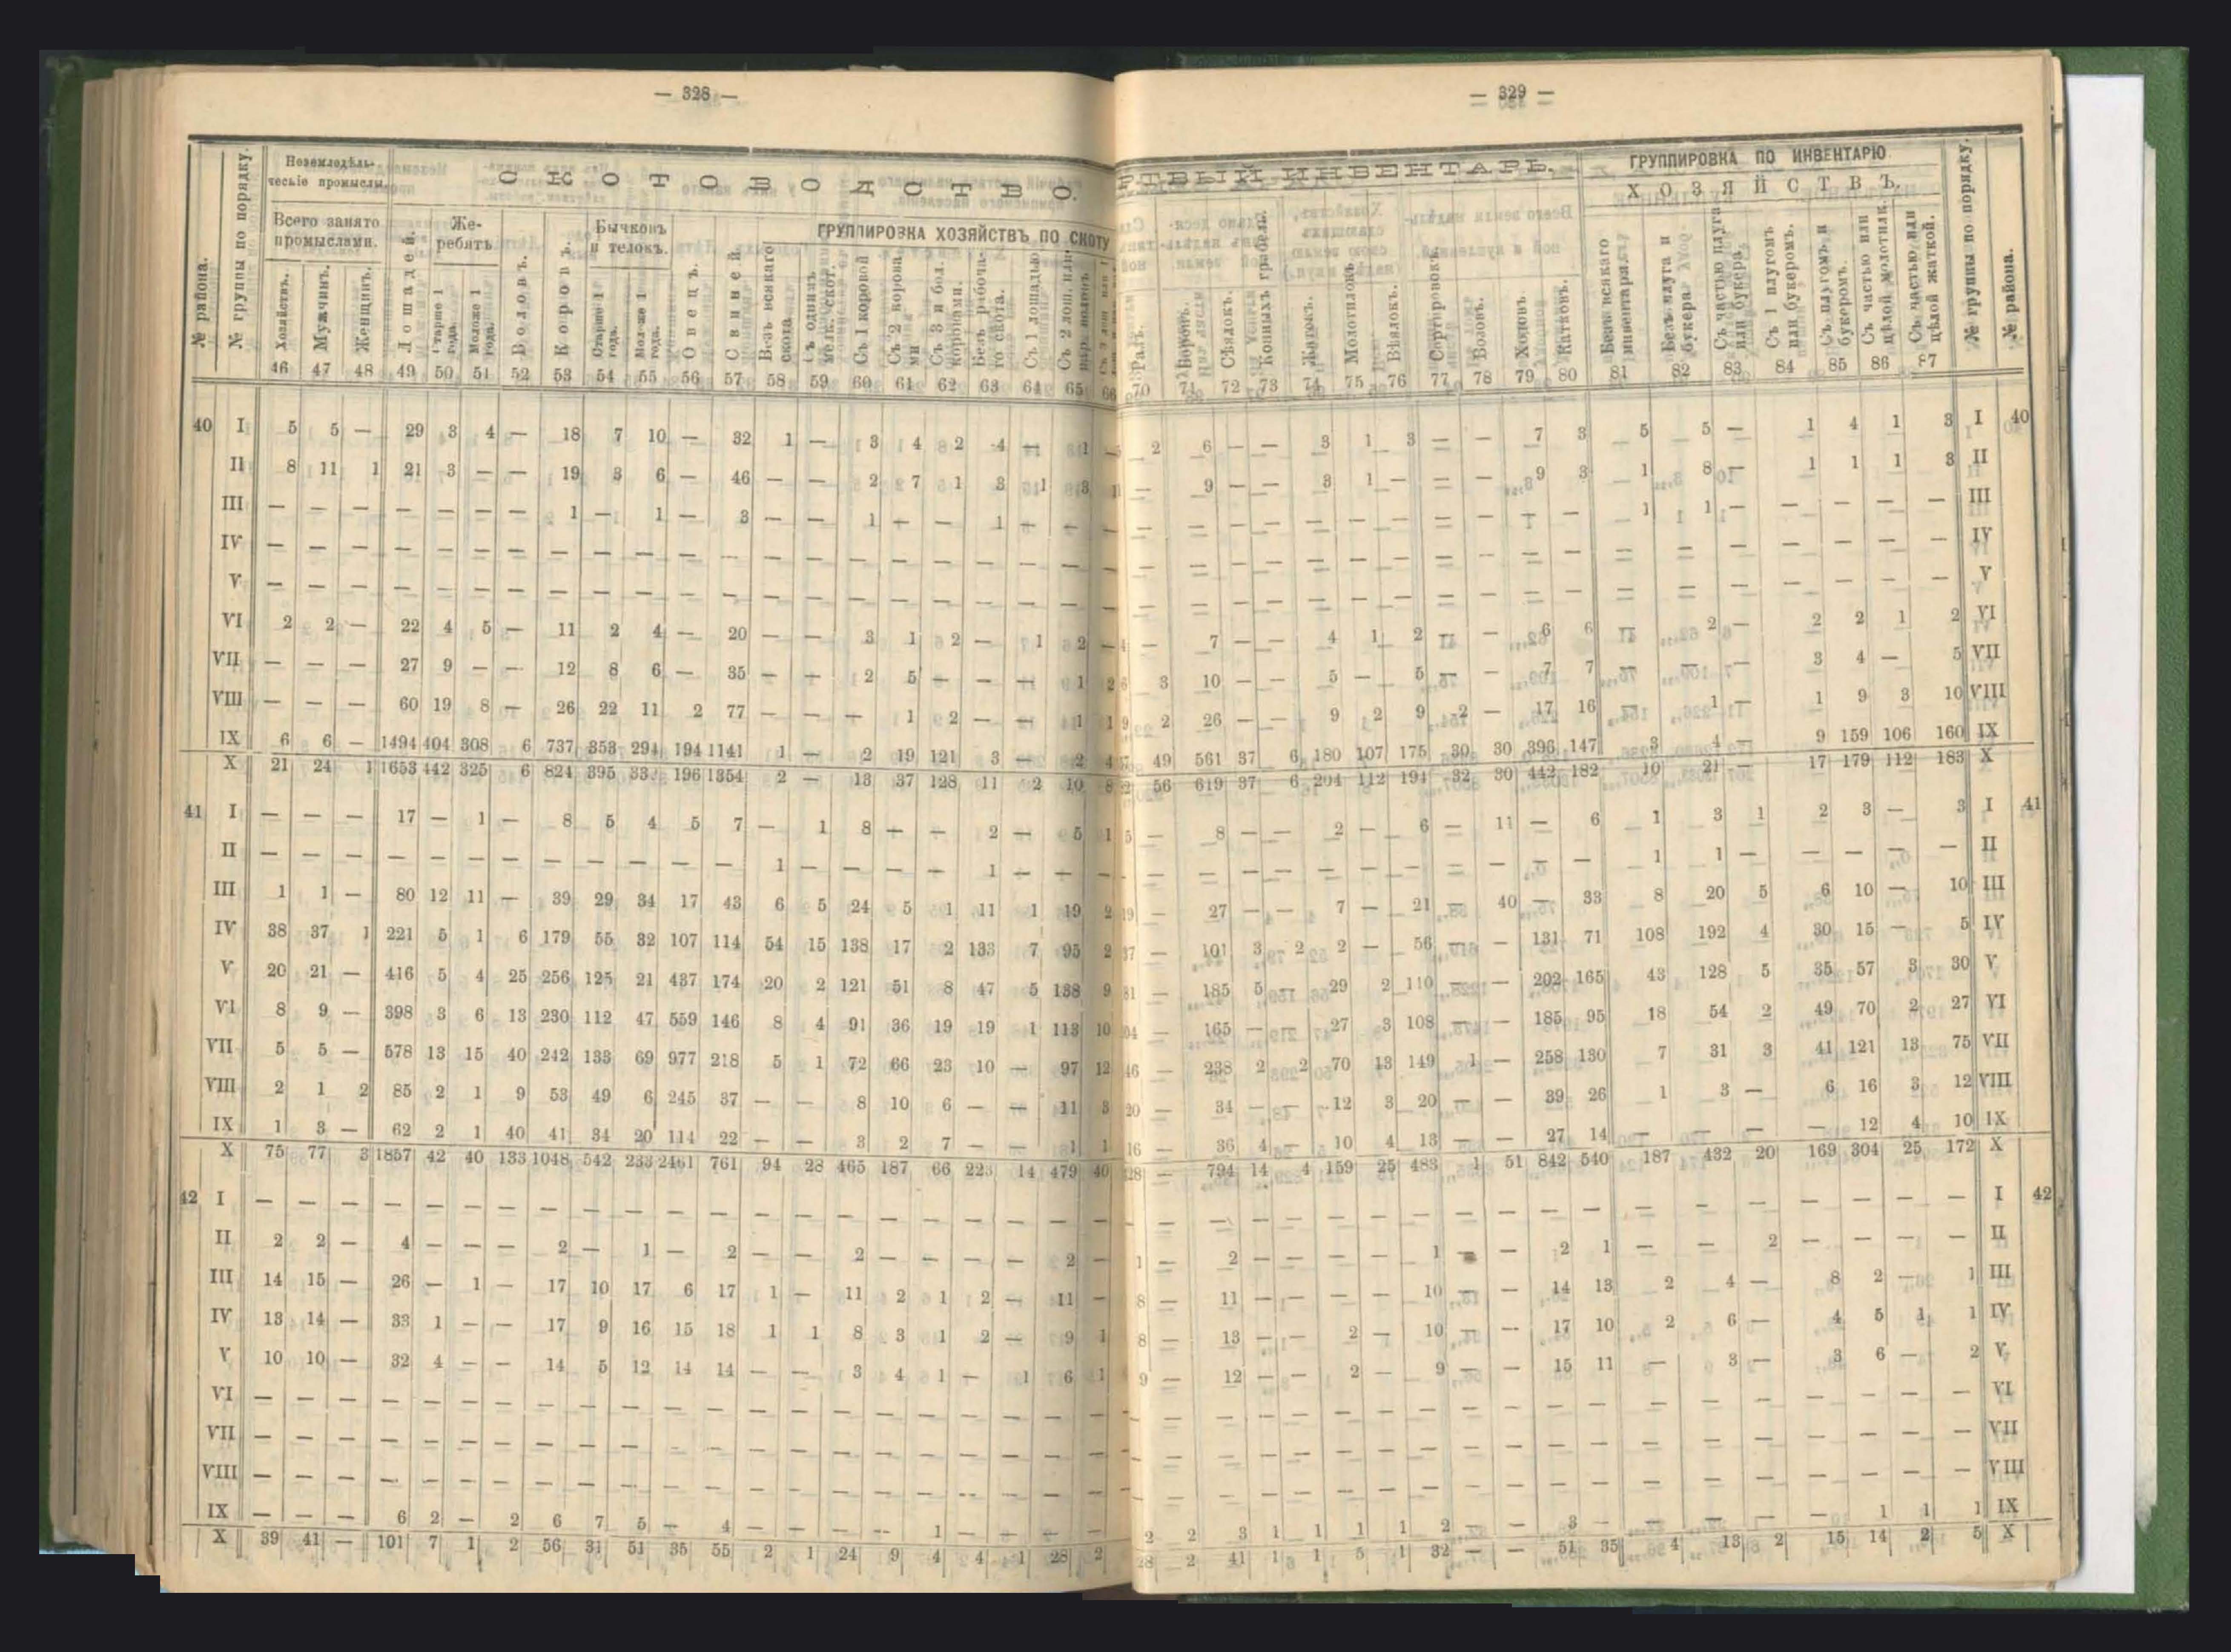 — 328 —
№ района.
№ группы по порядку.
Неземледѣль-
ческіе промыслы.
СКОТОВОДСТВО.
Всего занято
промыслами.
Же-
ребятъ
Бычковъ
и телокъ.
ГРУППИРОВКА ХОЗЯЙСТВЪ ПО СКОТУ
Хозяйствъ.
Мужчинъ.
Женщинъ.
Лошадей.
Старше 1 года.
Моложе 1 года.
Воловъ.
Коровъ.
Старше 1 года.
Моложе 1 года.
Овецъ.
Свиней.
Безъ всякаго скота
Съ однимъ мелк. скот.
Съ 1 коровой
Съ 2 коровами
Съ 3 и бол. коровами.
Безъ рабочаго скота.
Съ 1 лошадью
46 47 48 49 50 51 52 53 54 55 56 57 58 59 60 61 62 63 64 65 66
40 I 5 5 — 29 3 4 — 18 7 10 — 32 1 — 3 4 2 4 — 1
II 8 11 1 21 3 — — 19 3 6 — 46 — — 2 7 1 3 1 3
III — — — — — — — 1 — 1 — 3 — — 1 — — 1 — —
IV — — — — — — — — — — — — — — — — — — — —
V — — — — — — — — — — — — — — — — — — — —
VI 2 2 — 22 4 5 — 11 2 4 — 20 — — 3 1 2 — 1 2
VII — — — 27 9 — — 12 8 6 — 35 — — 2 5 — — — 1
VIII — — — 60 19 8 — 26 22 11 2 77 — — — 1 2 — — 1
IX 6 6 — 1494 404 308 6 737 353 294 194 1141 1 — 2 19 121 3 — 2
X 21 24 1 1653 442 325 6 824 395 332 196 1354 2 — 13 37 128 11 2 10
41 I — — — 17 — 1 — 8 5 4 5 7 — 1 8 — — 2 — 5
II — — — — — — — — — — — — 1 — — — — 1 — —
III 1 1 — 80 12 11 — 39 29 34 17 43 6 5 24 5 1 11 1 19
IV 38 37 1 221 5 1 6 179 55 32 107 114 54 15 138 17 2 133 7 95
V 20 21 — 416 5 4 25 256 125 21 437 174 20 2 121 51 8 47 5 138
VI 8 9 — 398 3 6 13 230 112 47 559 146 8 4 91 36 19 19 1 113
VII 5 5 — 578 13 15 40 242 133 69 977 218 5 1 72 66 23 10 — 97
VIII 2 1 2 85 2 1 9 53 49 6 245 37 — — 8 10 6 — — 11
IX 1 3 — 62 2 1 40 41 34 20 114 22 — — 3 2 7 — — 1
X 75 77 3 1857 42 40 133 1048 542 233 2461 761 94 28 465 187 66 223 14 479
42 I — — — — — — — — — — — — — — — — — — — — —
II 2 2 — 4 — — — 2 — 1 — 2 — — 2 — — — — 2 —
III 14 15 — 26 — 1 — 17 10 17 6 17 1 — 11 2 1 2 — 11 —
IV 13 14 — 33 1 — — 17 9 16 15 18 1 1 8 3 1 2 — 9 1
V 10 10 — 32 4 — — 14 5 12 14 14 — — 3 4 1 — 1 6 1
VI — — — — — — — — — — — — — — — — — — — — —
VII — — — — — — — — — — — — — — — — — — — — —
VIII — — — — — — — — — — — — — — — — — — — — —
IX — — — 6 2 — 2 6 7 5 — 4 — — — — 1 — — — —
X 39 41 — 101 7 1 2 56 31 51 35 55 2 1 24 9 4 4 1 28 2
— 329 —
РТВЫЙ ИНВЕНТАРЬ.
ГРУППИРОВКА ПО ИНВЕНТАРЮ
ХОЗЯЙСТВЪ.
Ралъ.
Боронъ.
Сѣялокъ.
Конныхъ граблей.
Жатокъ.
Молотилокъ.
Вѣялокъ.
Сортировокъ.
Возовъ.
Ходовъ.
Катковъ.
Безъ всякаго инвентаря.
Безъ плуга и букера
Съ частью плуга или букера.
Съ 1 плугомъ или букеромъ.
Съ плугомъ и букеромъ.
Съ частью или цѣлой молотилк.
Съ частью или цѣлой жаткой.
№ группы по порядку.
№ района.
70 71 72 73 74 75 76 77 78 79 80 81 82 83 84 85 86 87
2 6 — — 3 1 3 — — 7 3 5 5 — 1 4 1 3 I 40
— 9 — — 3 1 — — — 9 3 1 8 — 1 1 1 3 II
— — — — — — — — — — — 1 1 — — — — — III
— — — — — — — — — — — — — — — — — — IV
— — — — — — — — — — — — — — — — — — V
— 7 — — 4 1 2 — — 6 6 — 2 — 2 2 1 2 VI
3 10 — — 5 — 5 — — 7 7 — — — 3 4 — 5 VII
2 26 — — 9 2 9 2 — 17 16 — 1 — 1 9 3 10 VIII
49 561 37 6 180 107 175 30 30 396 147 3 4 — 9 159 106 160 IX
56 619 37 6 204 112 194 32 30 442 182 10 21 — 17 179 112 183 X
— 8 — — 2 — 6 — 11 — 6 1 3 1 2 3 — 3 I 41
— — — — — — — — — — — 1 1 — — — — — II
— 27 — — 7 — 21 — 40 — 33 8 20 5 6 10 — 10 III
— 101 3 2 2 — 56 — — 131 71 108 192 4 30 15 — 5 IV
— 185 5 — 29 2 110 — — 202 165 43 128 5 35 57 3 30 V
— 165 — — 27 3 108 — — 185 95 18 54 2 49 70 2 27 VI
— 238 2 2 70 13 149 1 — 258 130 7 31 3 41 121 13 75 VII
— 34 — — 12 3 20 — — 39 26 1 3 — 6 16 3 12 VIII
— 36 4 — 10 4 13 — — 27 14 — — — — 12 4 10 IX
— 794 14 4 159 25 483 1 51 842 540 187 432 20 169 304 25 172 X
— — — — — — — — — — — — — — — — — — I 42
1 — 2 — — — — 1 — — 2 1 — — 2 — — — — II
8 — 11 — — — — 10 — — 14 13 2 4 — 8 2 — 1 III
8 — 13 — — 2 — 10 — — 17 10 2 6 — 4 5 1 1 IV
9 — 12 — — 2 — 9 — — 15 11 — 3 — 3 6 — 2 V
— — — — — — — — — — — — — — — — — — — VI
— — — — — — — — — — — — — — — — — — — VII
— — — — — — — — — — — — — — — — — — — VIII
2 2 3 1 1 1 1 2 — — 3 — — — — — 1 1 1 IX
28 2 41 1 1 5 1 32 — — 51 35 4 13 2 15 14 2 5 X